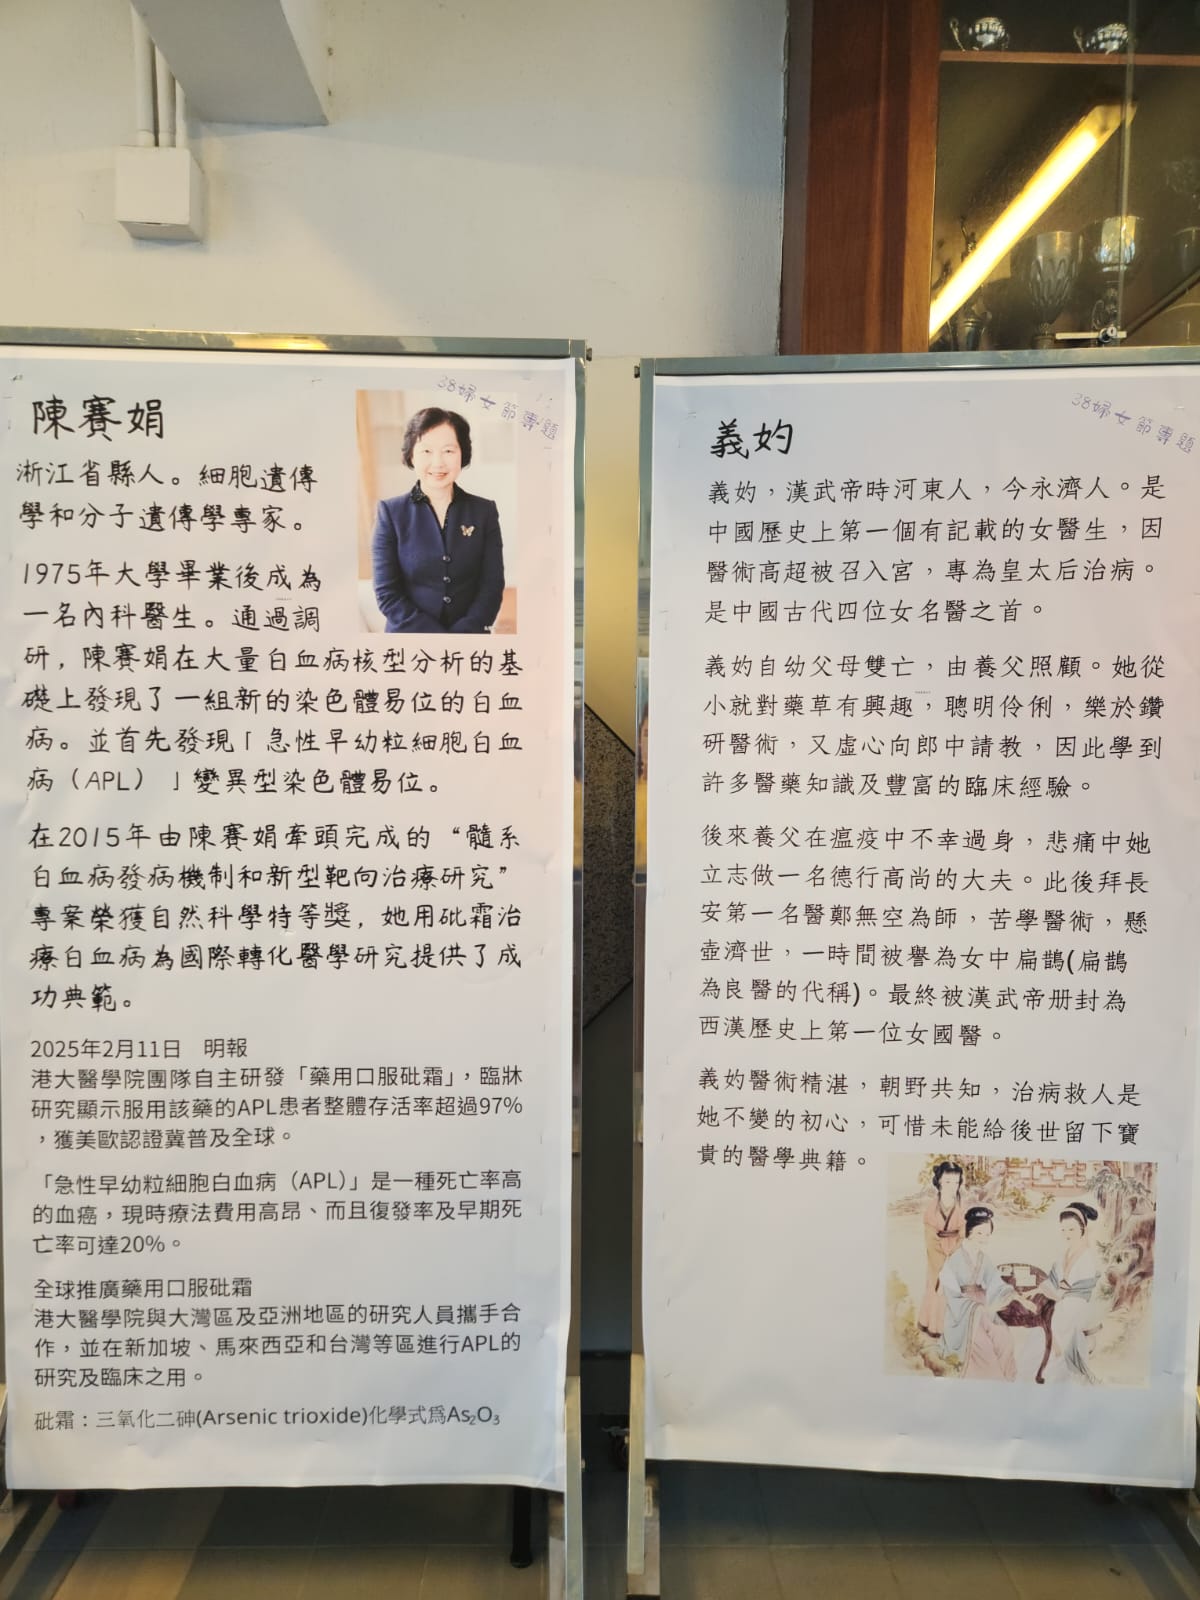 38婦女節專題
陳賽娟
淅江省縣人。細胞遺傳
學和分子遺傳學專家。
1975年大學畢業後成為
一名內科醫生。通過調
研，陳賽娟在大量白血病核型分析的基
礎上發現了一組新的染色體易位的白血
病。並首先發現「急性早幼粒細胞白血
病（APL）」變異型染色體易位。
在2015年由陳賽娟牽頭完成的“髓系
白血病發病機制和新型靶向治療研究”
專案榮獲自然科學特等獎，她用砒霜治
療白血病為國際轉化醫學研究提供了成
功典範。
2025年2月11日　明報
港大醫學院團隊自主研發「藥用口服砒霜」，臨牀
研究顯示服用該藥的APL患者整體存活率超過97%
，獲美歐認證冀普及全球。
「急性早幼粒細胞白血病（APL）」是一種死亡率高
的血癌，現時療法費用高昂、而且復發率及早期死
亡率可達20%。
全球推廣藥用口服砒霜
港大醫學院與大灣區及亞洲地區的研究人員攜手合
作，並在新加坡、馬來西亞和台灣等區進行APL的
研究及臨床之用。
砒霜：三氧化二砷(Arsenic trioxide)化學式爲As₂O₃
38婦女節專題
義妁
義妁，漢武帝時河東人，今永濟人。是
中國歷史上第一個有記載的女醫生，因
醫術高超被召入宮，專為皇太后治病。
是中國古代四位女名醫之首。
義妁自幼父母雙亡，由養父照顧。她從
小就對藥草有興趣，聰明伶俐，樂於鑽
研醫術，又虛心向郎中請教，因此學到
許多醫藥知識及豐富的臨床經驗。
後來養父在瘟疫中不幸過身，悲痛中她
立志做一名德行高尚的大夫。此後拜長
安第一名醫鄭無空為師，苦學醫術，懸
壺濟世，一時間被譽為女中扁鵲(扁鵲
為良醫的代稱)。最終被漢武帝册封為
西漢歷史上第一位女國醫。
義妁醫術精湛，朝野共知，治病救人是
她不變的初心，可惜未能給後世留下寶
貴的醫學典籍。